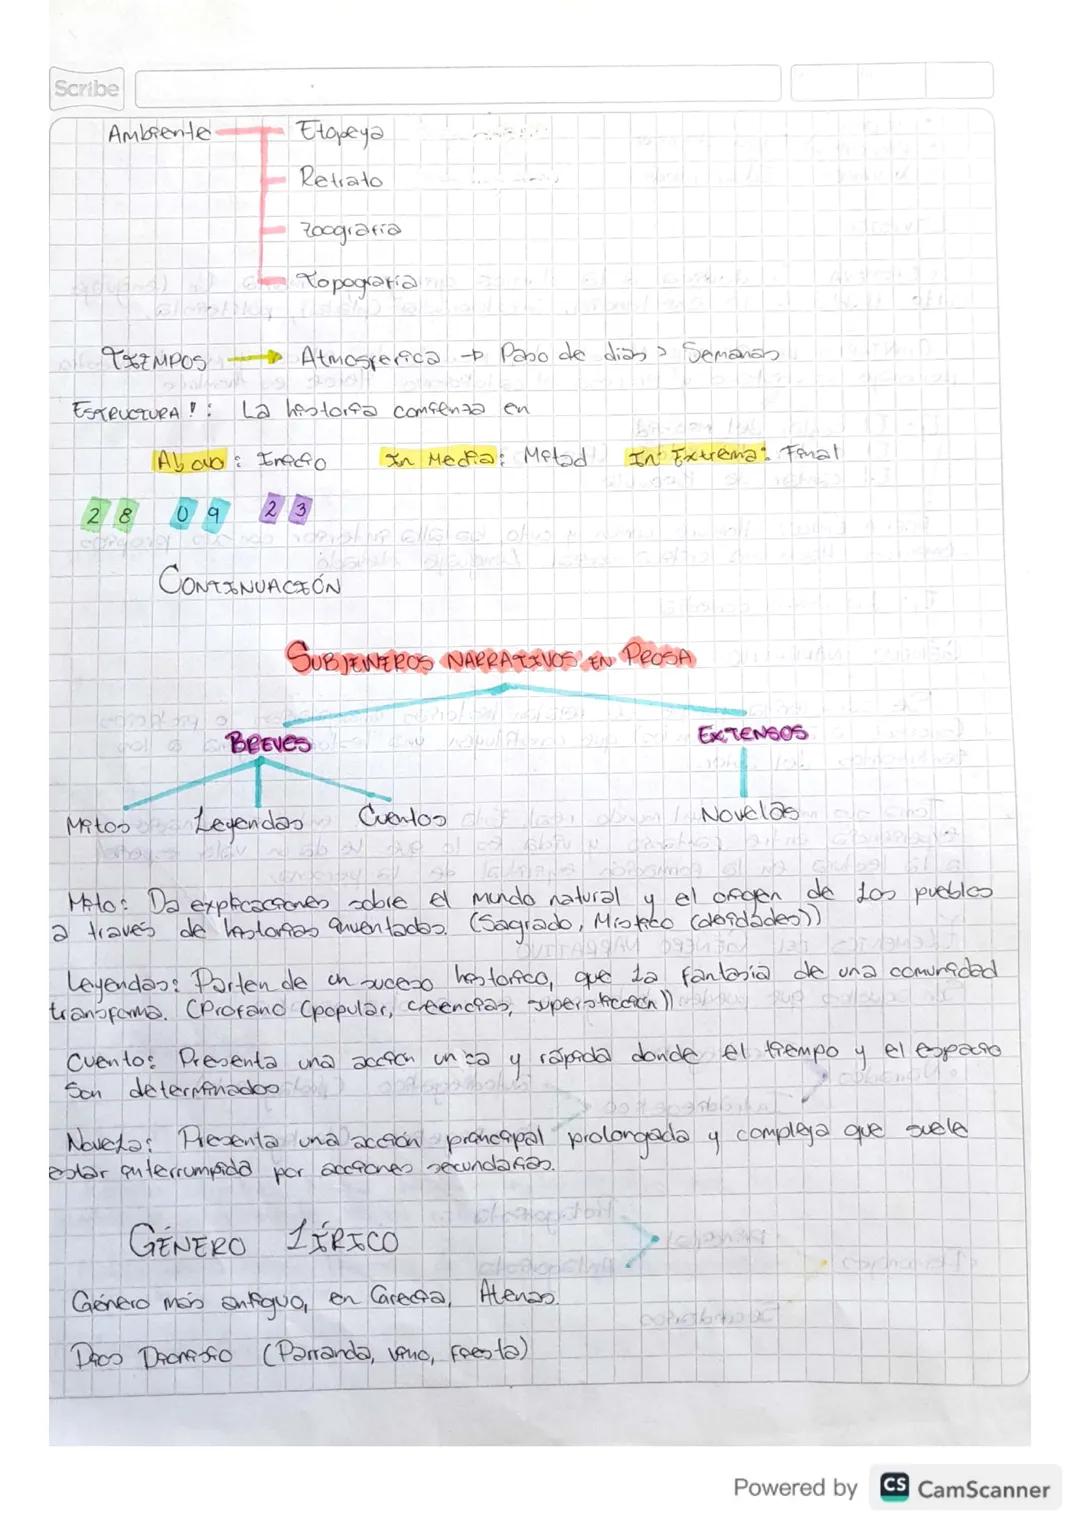 Scribe
Ambiente Etopeya
Retrato
Zoografía
Topografía
TIEMPOS → Atmosferica → Paso de dias > Semanas
ESTRUCTURA!: La historia comienza en
Ab ovo: Inicio In Media: Mitad In Extrema: Final
28 09 23
CONTINUACIÓN
SUBJENEROS NARRATIVOS EN PROSA
BREVES EXTENSOS
Mitos Leyendas Cuentos Novelas
Mito: Da explicaciones sobre el mundo natural y el origen de los pueblos
a través de historias inventadas. (Sagrado, Mistico (deidades))
Leyendas: Parten de un suceso historico, que la fantasia de una comunidad
transforma. (Profano (popular, creencias, superstición))
Cuento: Presenta una acción unica y rápida donde el tiempo y el espacio
Son determinados
Novela: Presenta una acción principal prolongada y compleja que suele
estar interrumpida por acciones secundarias.
GÉNERO LÍRICO
Género más antiguo, en Grecia, Atenas.
Dios Dionisio (Parranda, vino, fiesta)
Powered by CS CamScanner